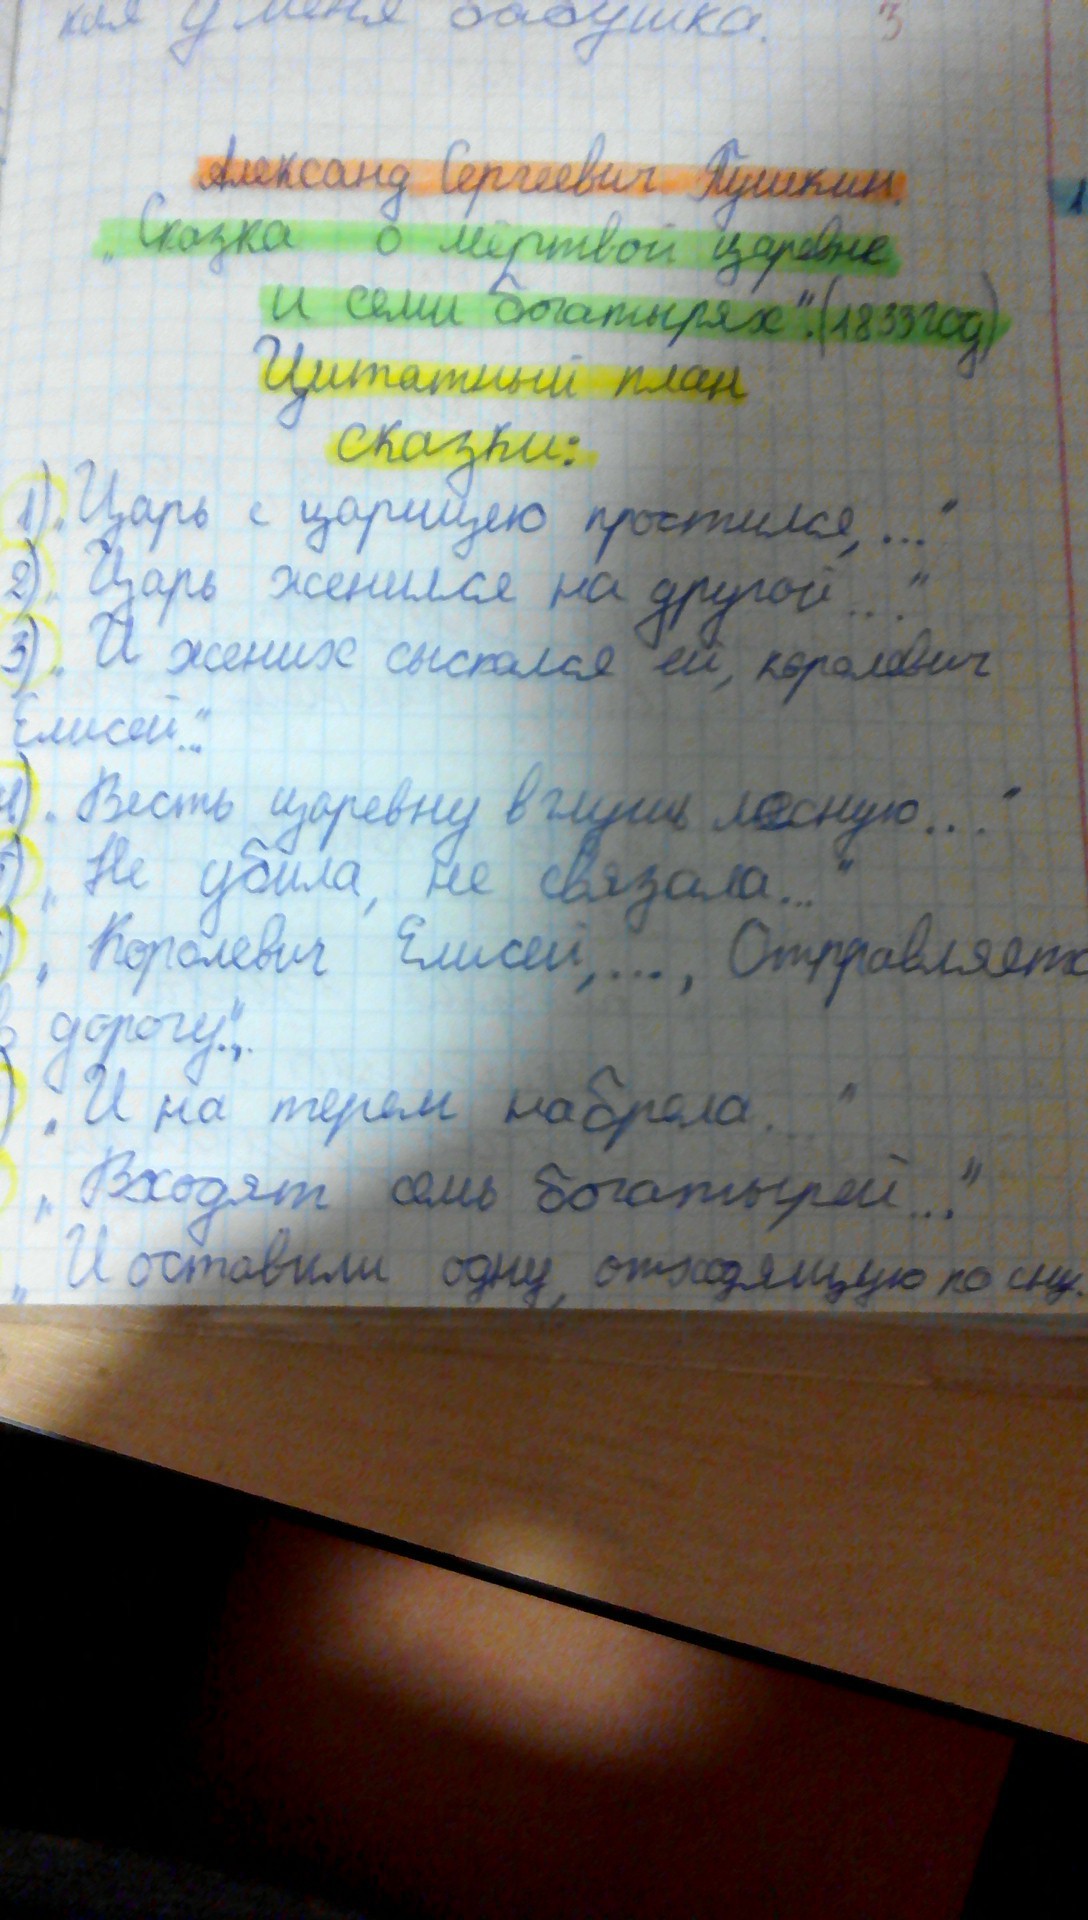 кая у меня бабушка. 3
Александ Сергеевич Пушкин.
„Сказка о мёртвой царевне
и семи богатырях". (1833 год)
Цитатный план
сказки:
1) „Царь с царицею простился, ..."
2) „Царь женился на другой ..."
3) „И жених сыскался ей, королевич
Елисей..."
4) „Весть царевну в глушь лесную..."
5) „Не убила, не связала..."
) „Королевич Елисей, ..., Отправляетс
в дорогу..."
) „И на терем набрела ..."
„Входят семь богатырей..."
„И оставили одну, отходящую ко сну.